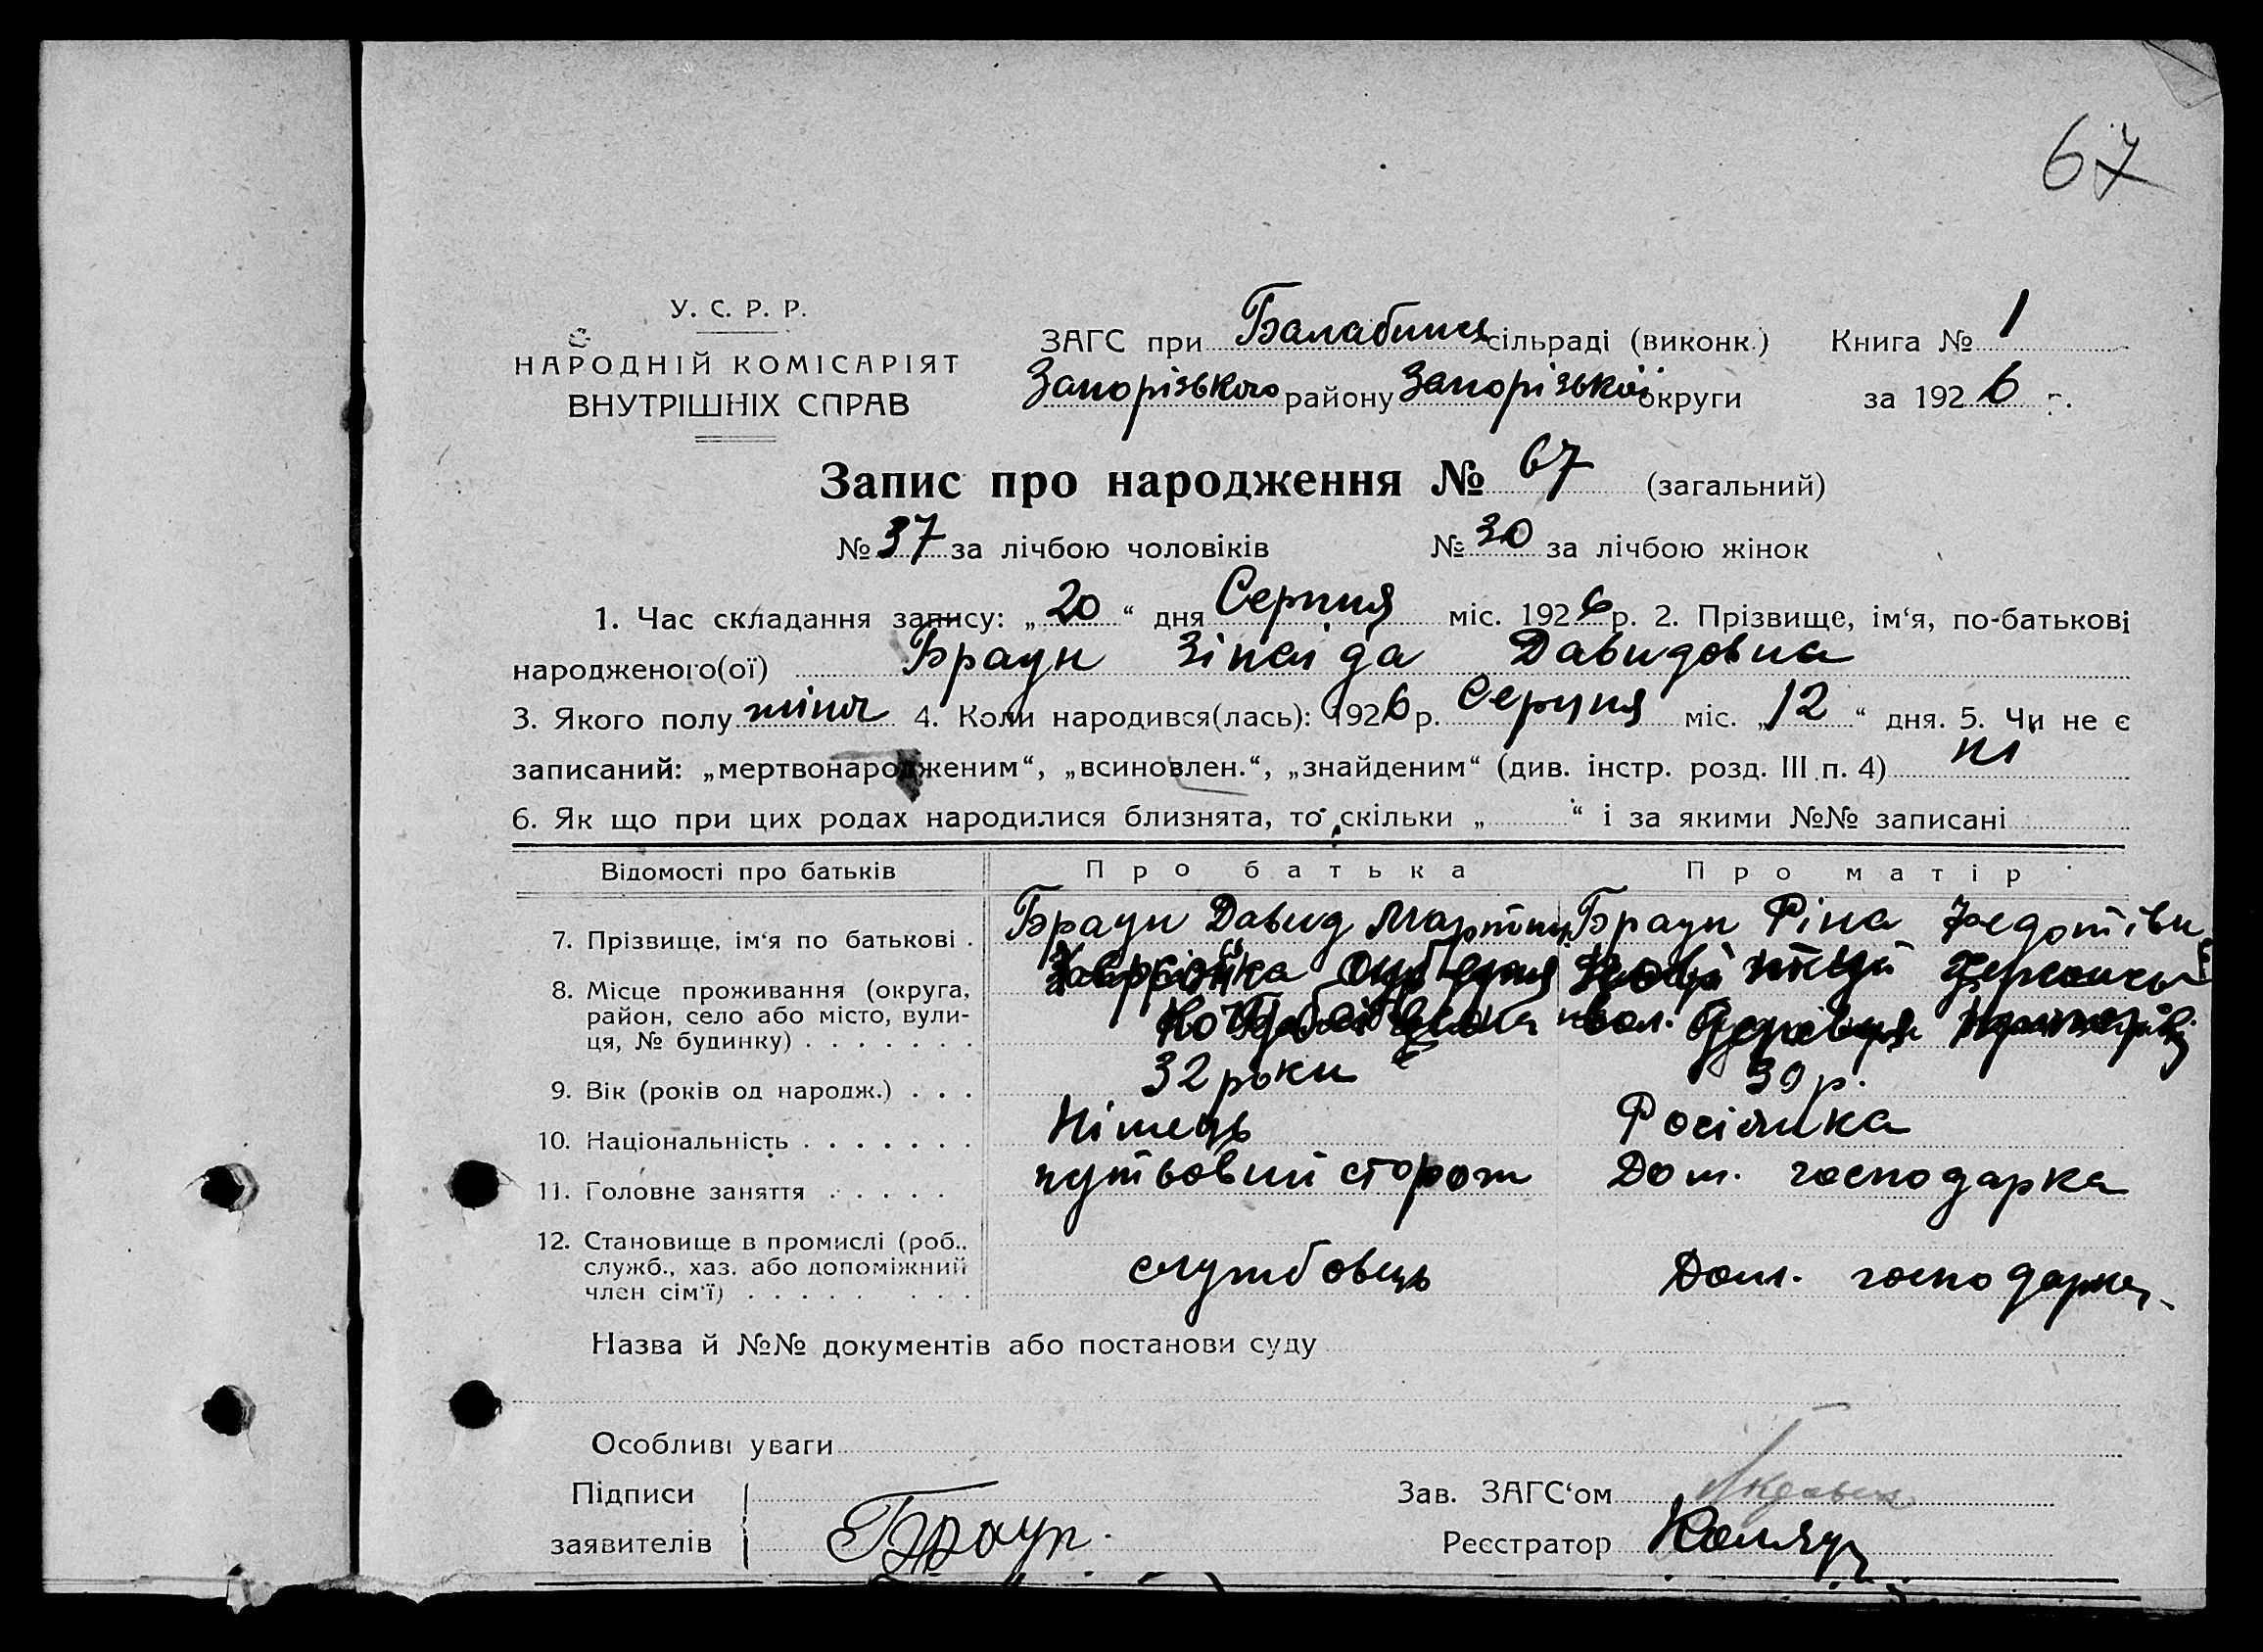 67
У. С. Р. Р.
НАРОДНІЙ КОМІСАРІЯТ
ВНУТРІШНІХ СПРАВ
ЗАГС при Балабинсь сільраді (виконк.) Книга № 1
Запорізького району Запорізької округи за 1926 р.
Запис про народження № 67 (загальний)
№ 37 за лічбою чоловіків № 30 за лічбою жінок
1. Час складання запису: „20“ дня Серпня міс. 1926 р. 2. Прізвище, ім‘я, по-батькові
народженого(ої) Браун Зінаіда Давидовна
3. Якого полу жіноч 4. Коли народився(лась): 1926 р. Серпня міс. „12“ дня. 5. Чи не є
записаний: „мертвонародженим“, „всиновлен.“, „знайденим“ (див. інстр. розд. III п. 4) ні
6. Як що при цих родах народилися близнята, то скільки „ “ і за якими №№ записані
Відомості про батьків Про батька Про матір
7. Прізвище, ім‘я по батькові . Браун Давид Мартин Браун Ріна Федотівн
8. Місце проживання (округа,
район, село або місто, вули-
ця, № будинку) . . . . . . .
9. Вік (років од народж.) . . . 32 роки 30 р.
10. Національність . . . . . . . Німець Росіянка
11. Головне заняття . . . . . путьовий сторож Дом. господарка
12. Становище в промислі (роб.,
служб., хаз. або допоміжний
член сім‘ї) . . . . . . . . службовець Дом. господарка
Назва й №№ документів або постанови суду
Особливі уваги
Підписи Зав. ЗАГС‘ом
заявителів Браун. Реєстратор